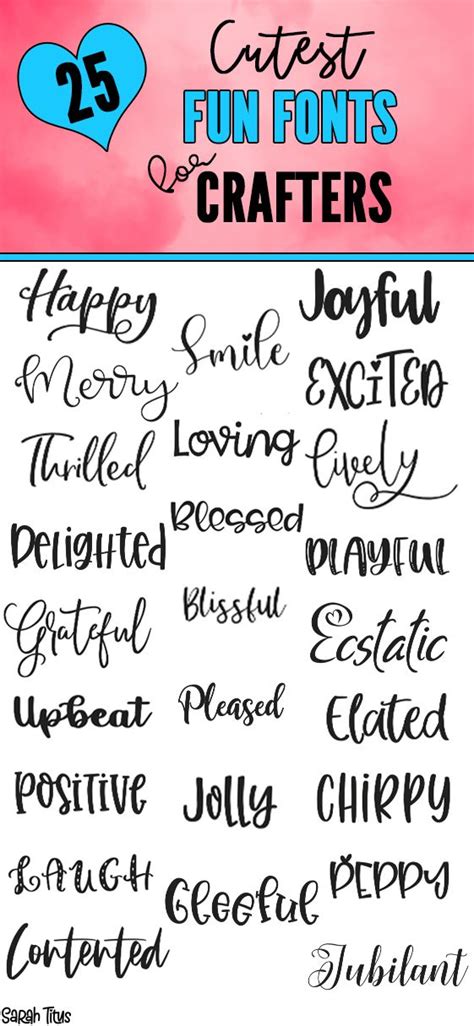 25
Cutest
FUN FONTS
for
CRAFTERS
Happy
Smile
Joyful
Merry
Loving
EXCiTED
Thrilled
Blessed
lively
Delighted
Blissful
PLAYFUL
Grateful
Pleased
Ecstatic
Upbeat
Jolly
Elated
Positive
Gleeful
CHIRPY
LAUGH
PEPPY
Contented
Jubilant
Sarah Titus